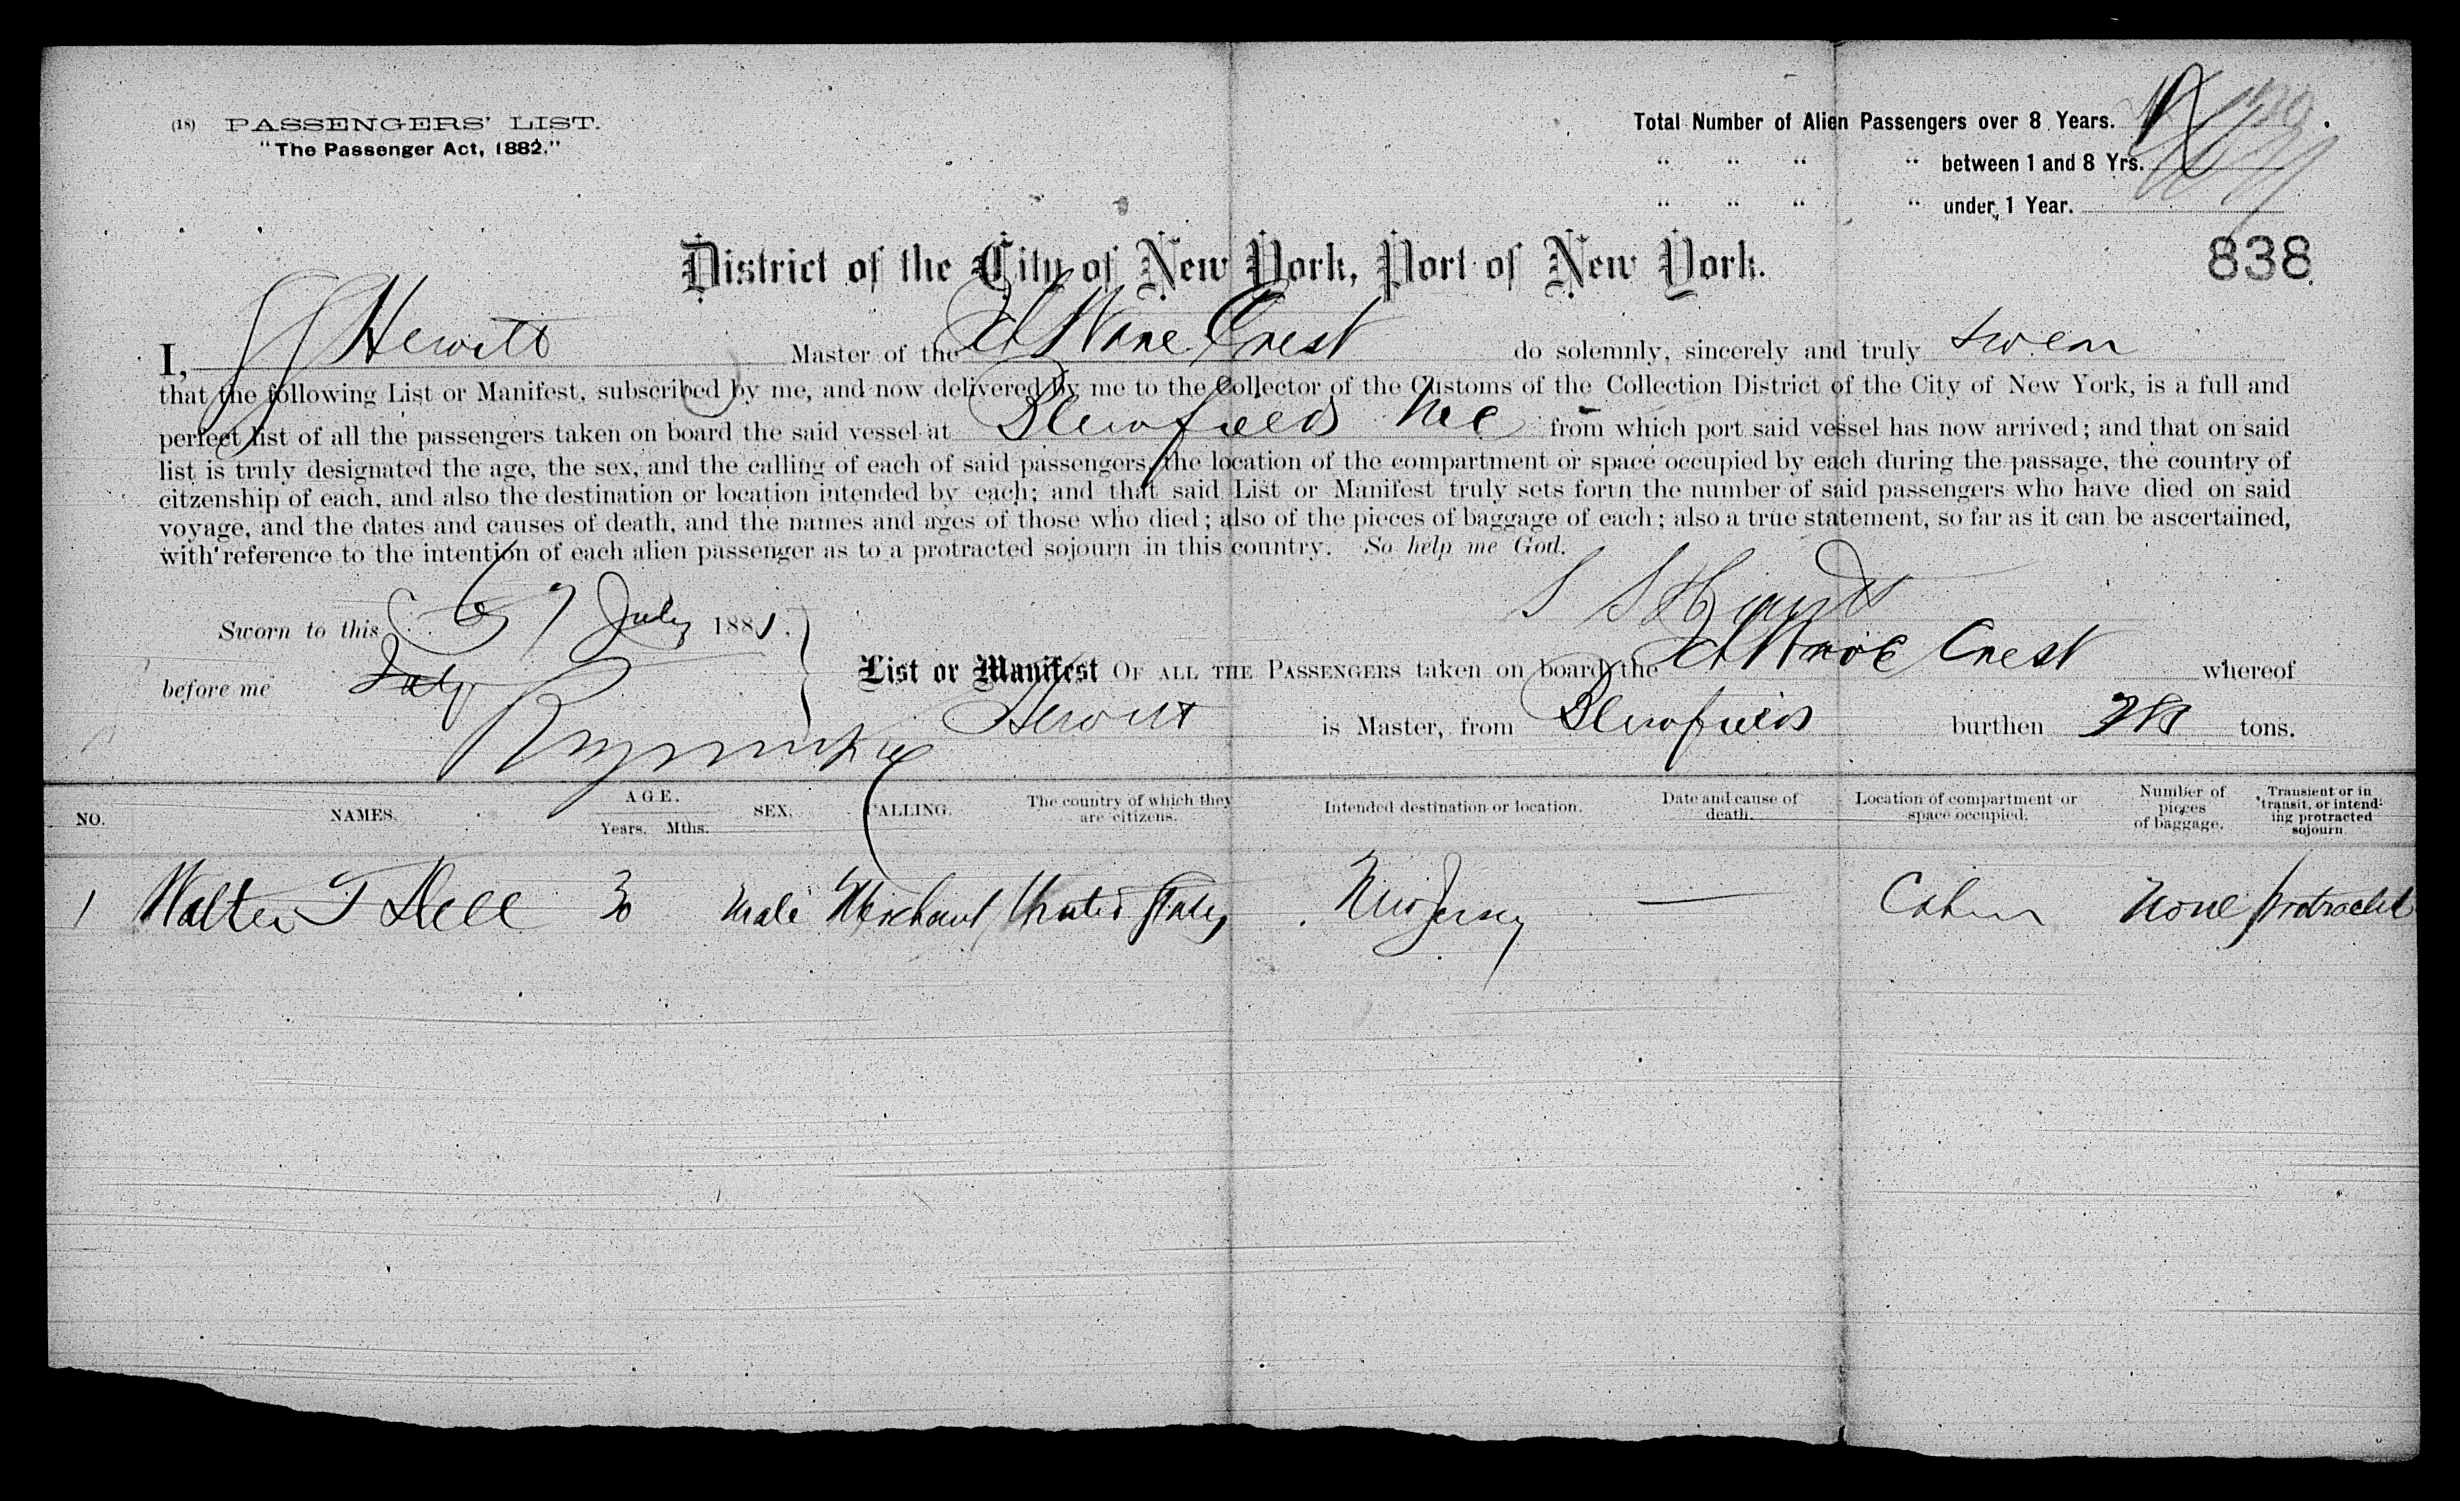 (18) PASSENGERS' LIST.
"The Passenger Act, 1882."
Total Number of Alien Passengers over 8 Years.
" " " " between 1 and 8 Yrs.
" " " " under 1 Year.
District of the City of New York, Port of New York.
838
I, Hewitt Master of the Crest do solemnly, sincerely and truly swear
that the following List or Manifest, subscribed by me, and now delivered by me to the Collector of the Customs of the Collection District of the City of New York, is a full and
perfect list of all the passengers taken on board the said vessel at Blewfields Nic from which port said vessel has now arrived; and that on said
list is truly designated the age, the sex, and the calling of each of said passengers, the location of the compartment or space occupied by each during the passage, the country of
citzenship of each, and also the destination or location intended by each; and that said List or Manifest truly sets forth the number of said passengers who have died on said
voyage, and the dates and causes of death, and the names and ages of those who died; also of the pieces of baggage of each; also a true statement, so far as it can be ascertained,
with reference to the intention of each alien passenger as to a protracted sojourn in this country. So help me God.
Sworn to this July 188
before me July
List or Manifest OF ALL THE PASSENGERS taken on board the Crest whereof
Hewitt is Master, from Blewfields burthen tons.
NO. NAMES. AGE. Years. Mths. SEX. CALLING. The country of which they are citizens. Intended destination or location. Date and cause of death. Location of compartment or space occupied. Number of pieces of baggage. Transient or in transit, or intending protracted sojourn.
1 Walter T Dell 30 Male Merchant United States New Jersey — Cabin None protracted